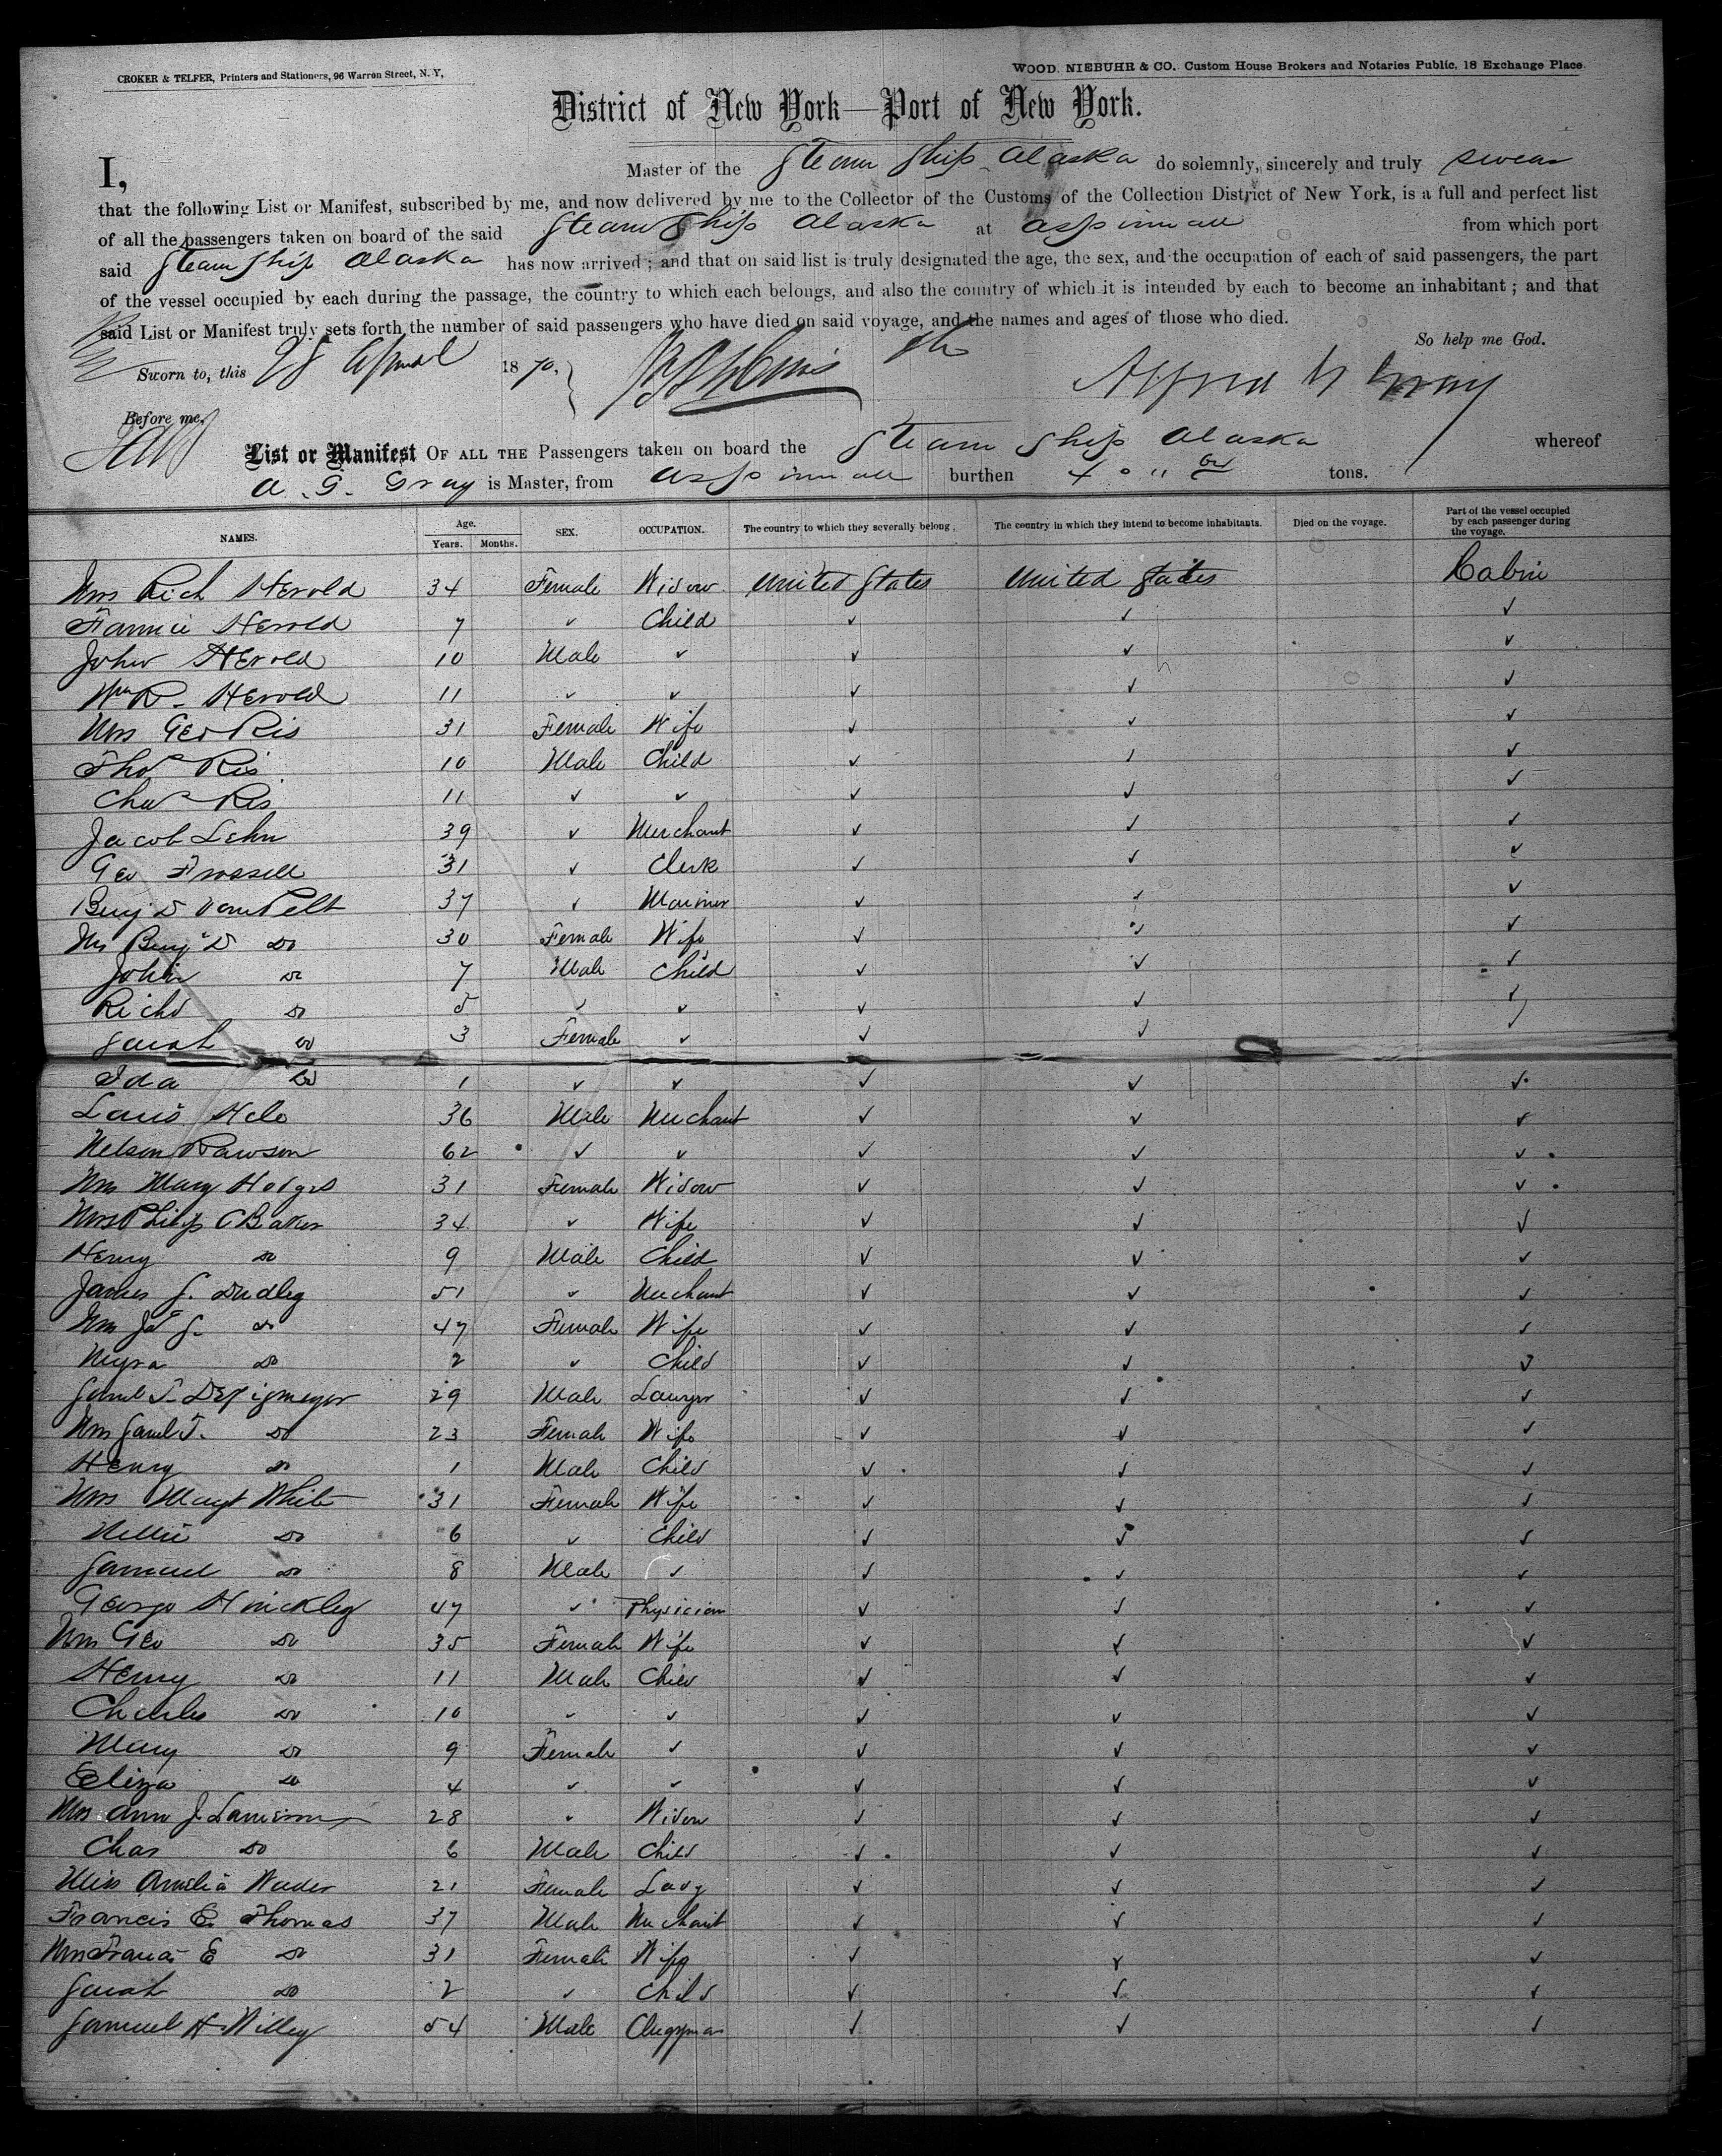 CROKER & TELFER, Printers and Stationers, 96 Warren Street, N. Y,
WOOD, NIEBUHR & CO. Custom House Brokers and Notaries Public, 18 Exchange Place.
District of New York—Port of New York.
I, Master of the Steam Ship Alaska do solemnly, sincerely and truly swear
that the following List or Manifest, subscribed by me, and now delivered by me to the Collector of the Customs of the Collection District of New York, is a full and perfect list
of all the passengers taken on board of the said Steam Ship Alaska at Aspinwall from which port
said Steam Ship Alaska has now arrived; and that on said list is truly designated the age, the sex, and the occupation of each of said passengers, the part
of the vessel occupied by each during the passage, the country to which each belongs, and also the country of which it is intended by each to become an inhabitant; and that
said List or Manifest truly sets forth the number of said passengers who have died on said voyage, and the names and ages of those who died.
So help me God.
Sworn to, this 28 April 1870,
Alfred G Gray
Before me,
List or Manifest OF ALL THE Passengers taken on board the Steam Ship Alaska whereof
A. G. Gray is Master, from Aspinwall burthen tons.
NAMES. Age. Years. Months. SEX. OCCUPATION. The country to which they severally belong. The country in which they intend to become inhabitants. Died on the voyage. Part of the vessel occupied by each passenger during the voyage.
Mrs Rich Herold 34 Female Widow United States United States Cabin
Fannie Herold 7 ✓ Child ✓ ✓ ✓
John Herold 10 Male ✓ ✓ ✓ ✓
Wm R. Herold 11 ✓ ✓ ✓ ✓ ✓
Mrs Geo Ris 31 Female Wife ✓ ✓ ✓
Thos Ris 10 Male Child ✓ ✓ ✓
Chas Ris 11 ✓ ✓ ✓ ✓ ✓
Jacob Lehn 39 ✓ Merchant ✓ ✓ ✓
Geo Frossell 31 ✓ Clerk ✓ ✓ ✓
Benj D VanPelt 37 ✓ Mariner ✓ ✓ ✓
Mrs Benj D Do 30 Female Wife ✓ ✓ ✓
John Do 7 Male Child ✓ ✓ ✓
Richd Do 5 ✓ ✓ ✓ ✓ ✓
Sarah Do 3 Female ✓ ✓ ✓ ✓
Ida Do 1 ✓ ✓ ✓ ✓ ✓
Louis 36 Male Merchant ✓ ✓ ✓
Nelson Rawson 62 ✓ ✓ ✓ ✓ ✓
Mrs Mary Hodges 31 Female Widow ✓ ✓ ✓
Mrs Philip C Baker 34 ✓ Wife ✓ ✓ ✓
Henry Do 9 Male Child ✓ ✓ ✓
James S. Dudley 51 ✓ Merchant ✓ ✓ ✓
Mrs Jas S. Do 47 Female Wife ✓ ✓ ✓
Myra Do 2 ✓ Child ✓ ✓ ✓
Saml T. 29 Male Lawyer ✓ ✓ ✓
Mrs Saml T. Do 23 Female Wife ✓ ✓ ✓
Henry Do 1 Male Child ✓ ✓ ✓
Mrs Margt White 31 Female Wife ✓ ✓ ✓
Nellie Do 6 ✓ Child ✓ ✓ ✓
Samuel Do 8 Male ✓ ✓ ✓ ✓
George Hinckley 47 ✓ Physician ✓ ✓ ✓
Mrs Geo Do 35 Female Wife ✓ ✓ ✓
Henry Do 11 Male Child ✓ ✓ ✓
Charles Do 10 ✓ ✓ ✓ ✓ ✓
Mary Do 9 Female ✓ ✓ ✓ ✓
Eliza Do 4 ✓ ✓ ✓ ✓ ✓
Mrs Ann J. Lamson 28 ✓ Widow ✓ ✓ ✓
Chas Do 6 Male Child ✓ ✓ ✓
Miss Amelia Wader 21 Female Lady ✓ ✓ ✓
Francis E. Thomas 37 Male Merchant ✓ ✓ ✓
Mrs Francis E Do 31 Female Wife ✓ ✓ ✓
Sarah Do 2 ✓ Child ✓ ✓ ✓
Samuel H. Willey 54 Male Clergyman ✓ ✓ ✓